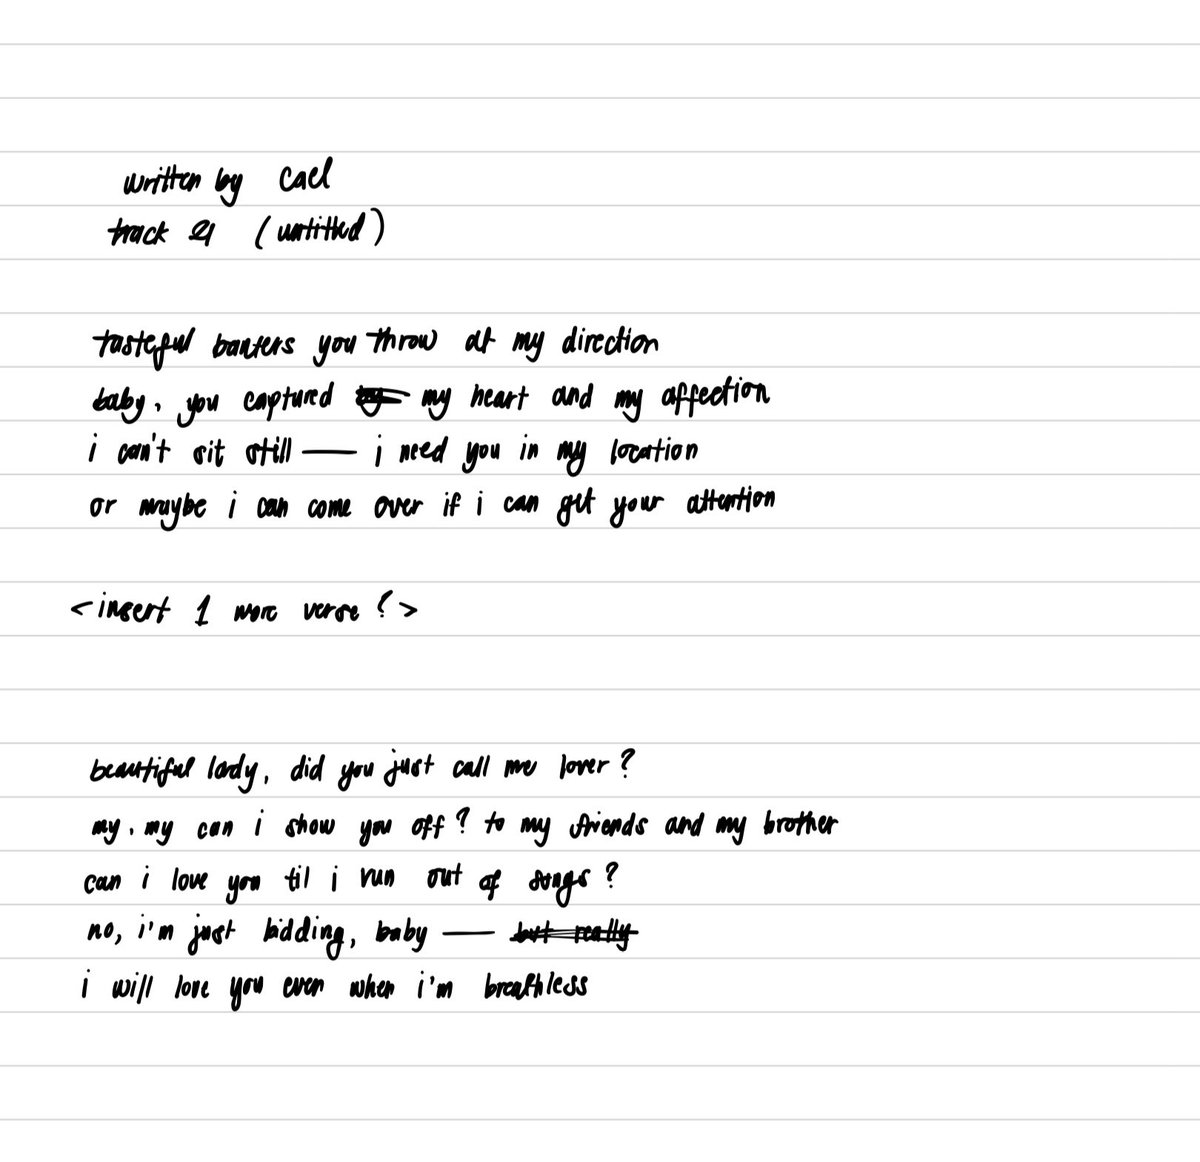 written by cael
track 21 (untitled)
tasteful banters you throw at my direction
baby, you captured my heart and my affection
i can't sit still — i need you in my location
or maybe i can come over if i can get your attention
<insert 1 more verse?>
beautiful lady, did you just call me lover?
my, my can i show you off? to my friends and my brother
can i love you til i run out of songs?
no, i'm just kidding, baby — but really
i will love you even when i'm breathless